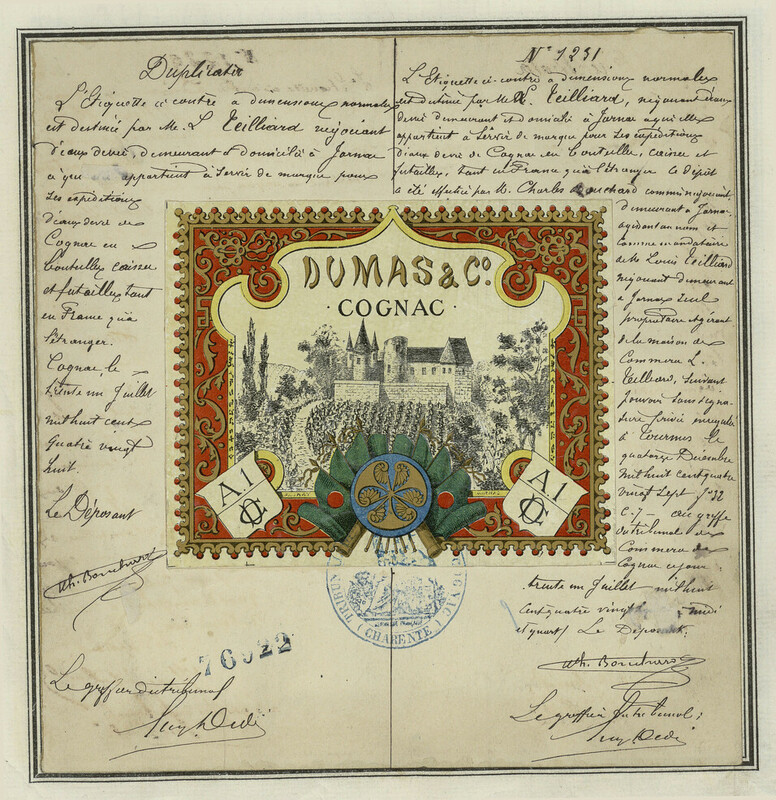 Duplicata
L'Etiquette ci contre à dimensions normales
est destinée par Mr. L. Teilliard négociant
d'eaux de vie, demeurant & domicilié à Jarnac
à qui appartient à servir de marque pour
Les expéditions
d'eaux de vie de
Cognac en
bouteilles caisses
et futailles tant
en France qu'à
l'étranger.
Cognac, le
trente un Juillet
mil huit cent
quatre vingt
huit.
Le Déposant
Ch. Bouchard
76922
Le greffier du tribunal
N° 1231
L'Etiquette ci-contre à dimensions normales
est destinée par Mr. L. Teilliard, négociant d'eaux
de vie demeurant et domicilié à Jarnac à qui elle
appartient à servir de marque pour Les expéditions
d'eaux de vie de Cognac en bouteilles, caisses et
futailles, tant en France qu'à l'étranger. Ce dépôt
a été effectué par M. Charles Bouchard commis négociant,
demeurant à Jarnac
agissant au nom et
comme mandataire
de Mr Louis Teilliard
négociant demeurant
à Jarnac seul
propriétaire & gérant
de la maison de
Commerce L.
Teilliard, suivant
pouvoir sous signa-
ture privée enregistré
à Tournus le
quatorze Décembre
mil huit cent quatre
vingt sept f° 32
C. 7 - au greffe
du tribunal de
Commerce de
Cognac ce jour
trente un Juillet mil huit
cent quatre vingt midi
et quart Le Déposant.
Ch. Bouchard
Le greffier du tribunal;
DUMAS & Co.
· COGNAC ·
A1
A1
TRIBUN
COGNAC
(CHARENTE)